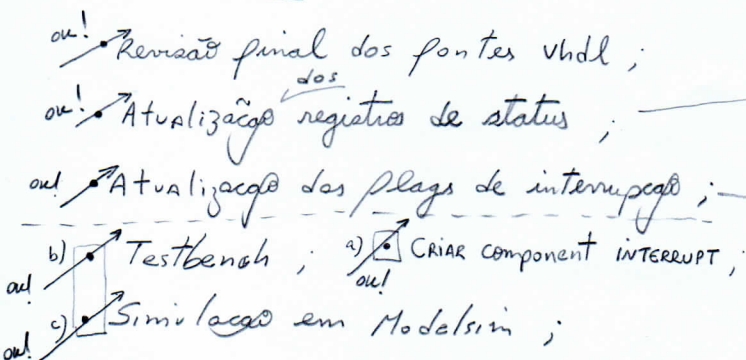 ok! • Revisão final dos fontes vhdl ;
dos
ok! • Atualização registros de status ;
ok! • Atualização das flags de interrupção ;
b) • Testbench ; a) • CRIAR component INTERRUPT ;
ok! ok!
c) • Simulação em Modelsim ;
ok!